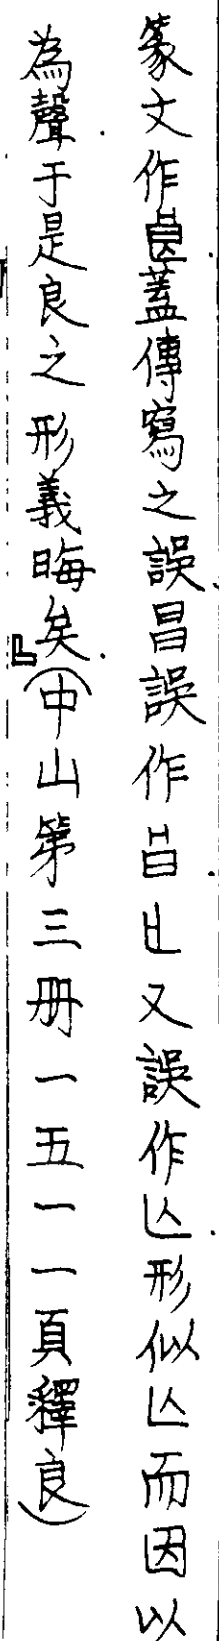 篆文作𥃩蓋傳寫之誤昌誤作㫐㘝又誤作亾形似亾而因以
為聲于是良之形義晦矣』(中山第三册一五一一頁釋良)